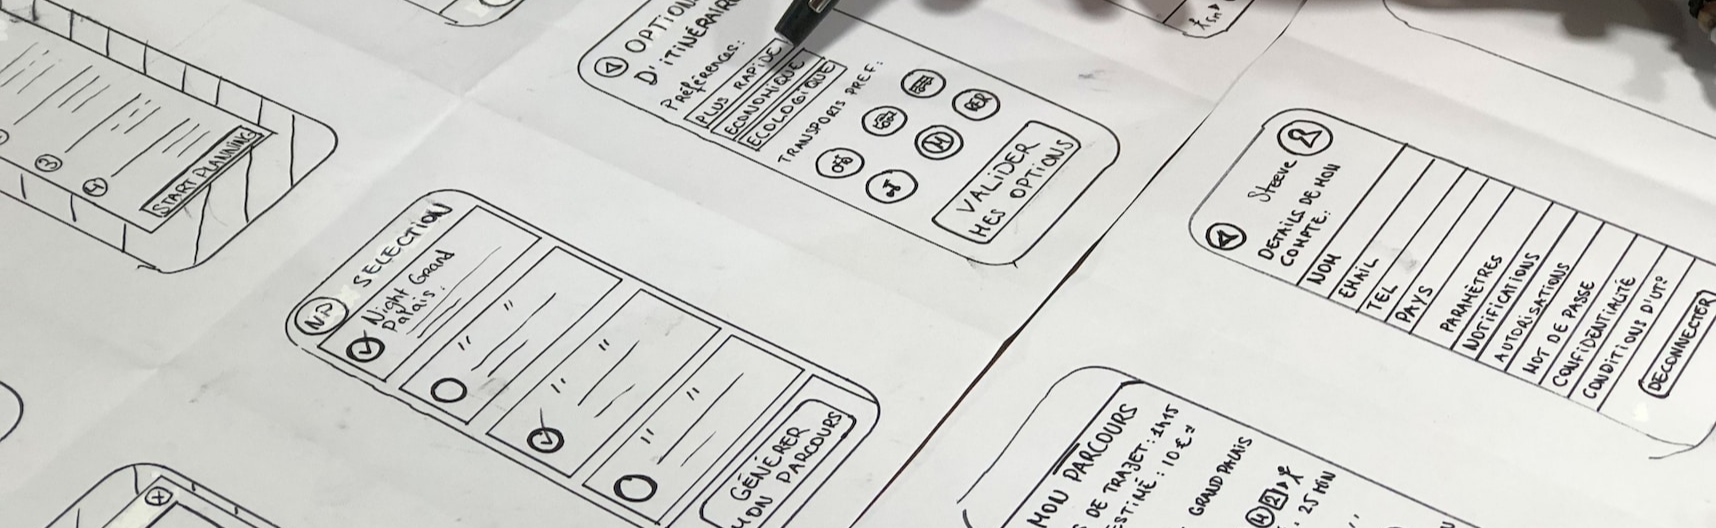 ③
④
START PLANNING
OPTIONS
D'ITINÉRAIRE
Préférences:
PLUS RAPIDE
ECONOMIQUE
ECOLOGIQUE
TRANSPORTS PREF:
RER
M
VALIDER
MES OPTIONS
NP
SELECTION
Night Grand
Palais:
"
"
"
"
"
"
GÉNÉRER
MON PARCOURS
Steeve
DETAILS DE MON
COMPTE:
NOM
EMAIL
TEL
PAYS
PARAMÈTRES
NOTIFICATIONS
AUTORISATIONS
MOT DE PASSE
CONFIDENTIALITÉ
CONDITIONS D'UT°
DECONNECTER
MON PARCOURS
DE TRAJET: 1H15
ESTIMÉ: 10€
GRAND PALAIS
M 2
: 25 MIN